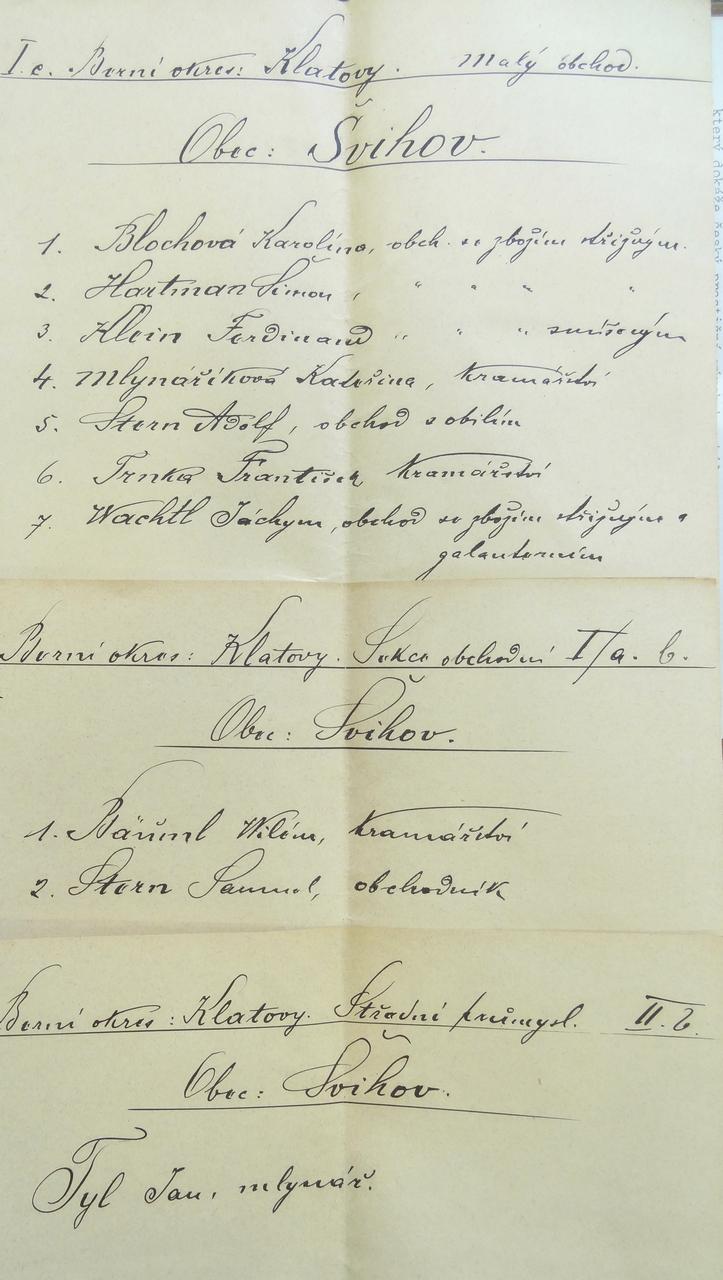 I. c. Berní okres: Klatovy. Malý obchod.
Obec: Švihov.
1. Blochová Karolína, obch. se zbožím střižným.
2. Hartman Šimon, " " " "
3. Klein Ferdinand " " " smíšeným
4. Mlynáříková Kateřina, kramářství
5. Stern Adolf, obchod s obilím
6. Trnka František kramářství
7. Wachtl Jáchym, obchod se zbožím střižným a
galanterním
Berní okres: Klatovy. Sekce obchodní I/a. b.
Obec: Švihov.
1. Bäuml Wilém, kramářství
2. Stern Samuel, obchodník
Berní okres: Klatovy. Střední průmysl. II. b.
Obec: Švihov.
Tyl Jan, mlynář.